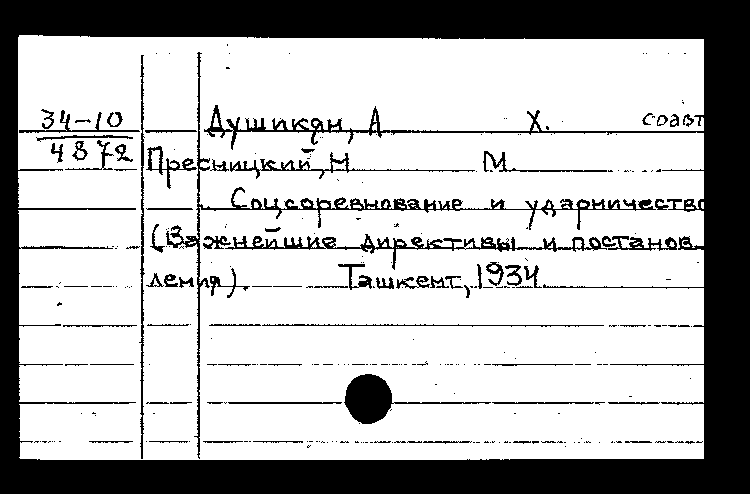 34-10
4872
Душикян, А Х. соавт
Пресницкий, Н М.
Соцсоревнование и ударничество
(Важнейшие директивы и постанов
ления). Ташкент, 1934